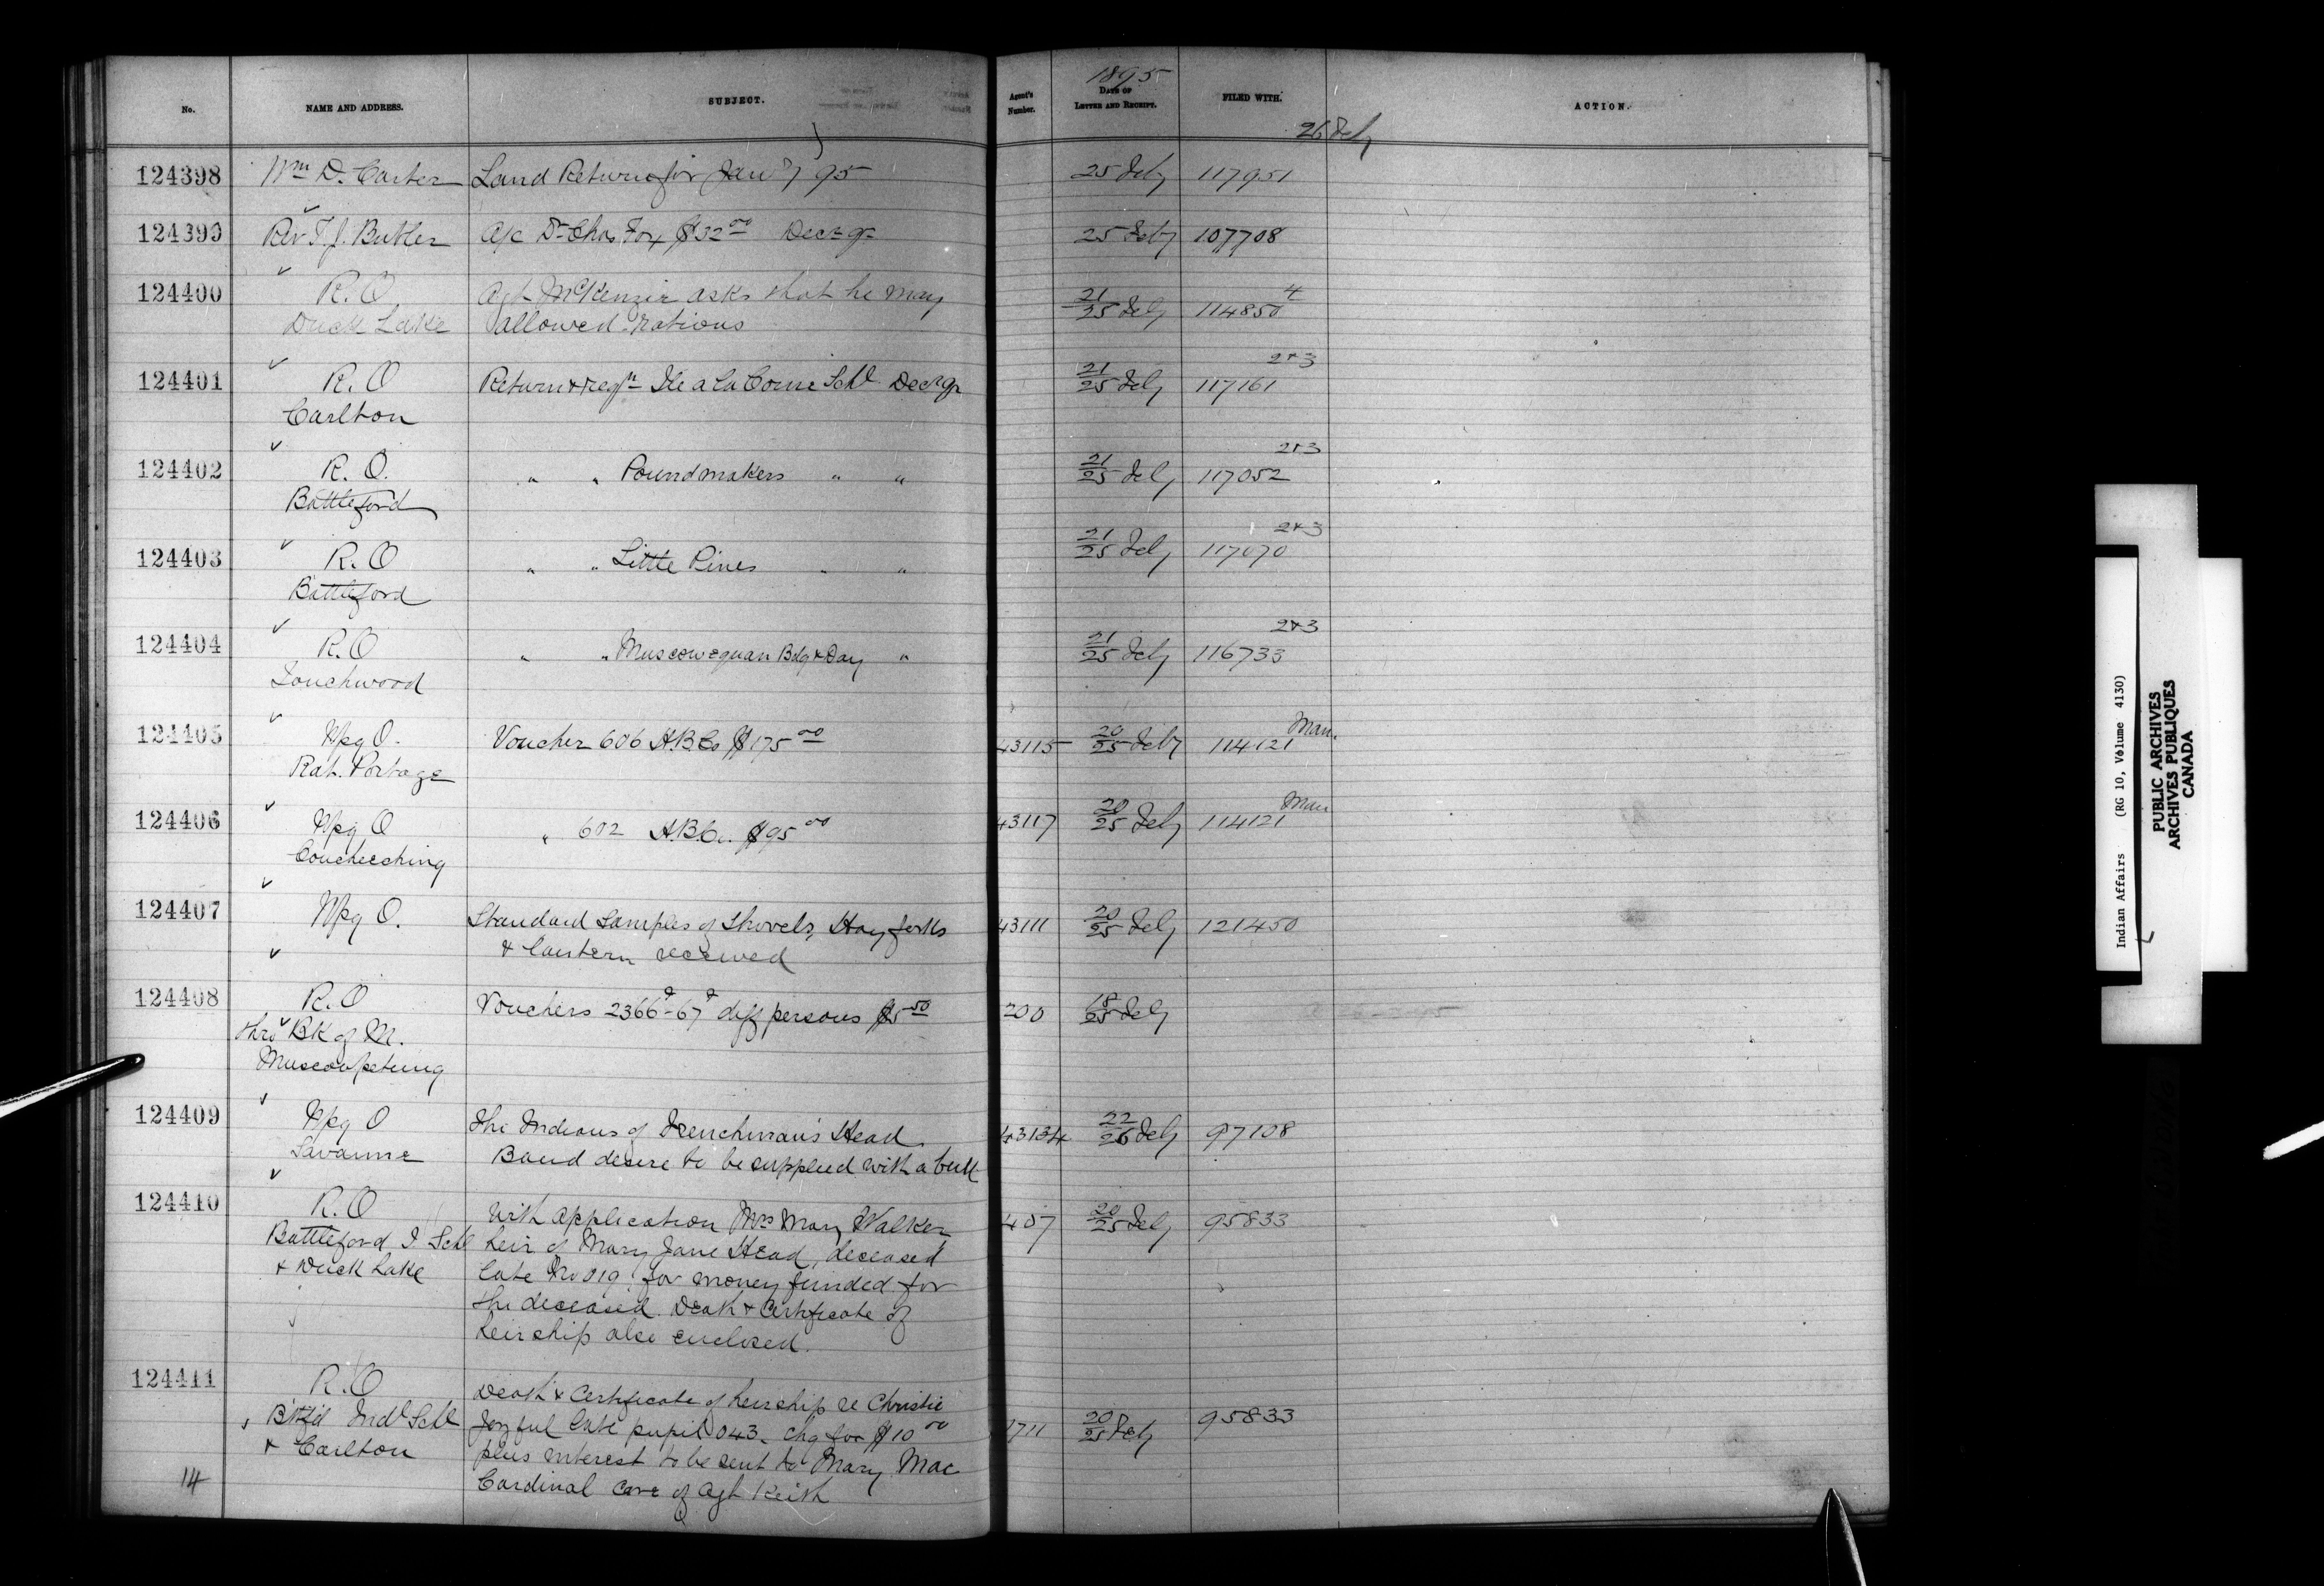 No. NAME AND ADDRESS. SUBJECT. Agent's Number. 1895 DATE OF LETTER AND RECEIPT. FILED WITH. ACTION.
26 Feby
124398 Wm D. Carter Land Return for Jany 95 25 Feby 117951
124399 Rev T. J. Butler A/c Dr Chas Fox $32 00 Dec qr 25 Feby 107708
124400 R. O. Agt McKenzie asks that he may 21/25 Feby 114850 4
Duck Lake allowed rations
124401 R. O Return & regr Ile a La Corne Schl Dec qr 21/25 Feby 117161 2&3
Carlton
124402 R. O. " " Poundmakers " " 21/25 Feby 117052 2&3
Battleford
124403 R. O " " Little Pines " " 21/25 Feby 117070 2&3
Battleford
124404 R. O " " Muscowequan Bdg & Day " 21/25 Feby 116733 2&3
Touchwood
124405 Wpg O. Voucher 606 H.B.Co $175 00 43115 20/25 Feby 114121 Man.
Rat. Portage
124406 Wpg O " 602 H.B.Co. $95 00 43117 20/25 Feby 114121 Man
Coucheeching
124407 Wpg O. Standard Samples of Shovels, Hay forks 43111 20/25 Feby 121450
& Lantern received
124408 R. O Vouchers 2366-67 diff persons $5 50 200 18/25 Feby
thro BK of M.
Muscowpetung
124409 Wpg O The Indians of Frenchman's Head 43134 22/26 Feby 97108
Savanne Band desire to be supplied with a bull
124410 R. O With application Mrs Mary Walker, 407 20/25 Feby 95833
Battleford I Schl heir of Mary Jane Head, deceased
& Duck Lake late No 019, for money funded for
the deceased. Death & Certificate of
heirship also enclosed.
124411 R. O Death & Certificate of heirship re Christie
Bttfd Indl Schl Joyful late pupil 043. Chq for $10 00 1711 20/25 Feby 95833
& Carlton plus interest to be sent to Mary Mac
14 Cardinal care of Agt Keith
Indian Affairs (RG 10, Volume 4130)
PUBLIC ARCHIVES
ARCHIVES PUBLIQUES
CANADA